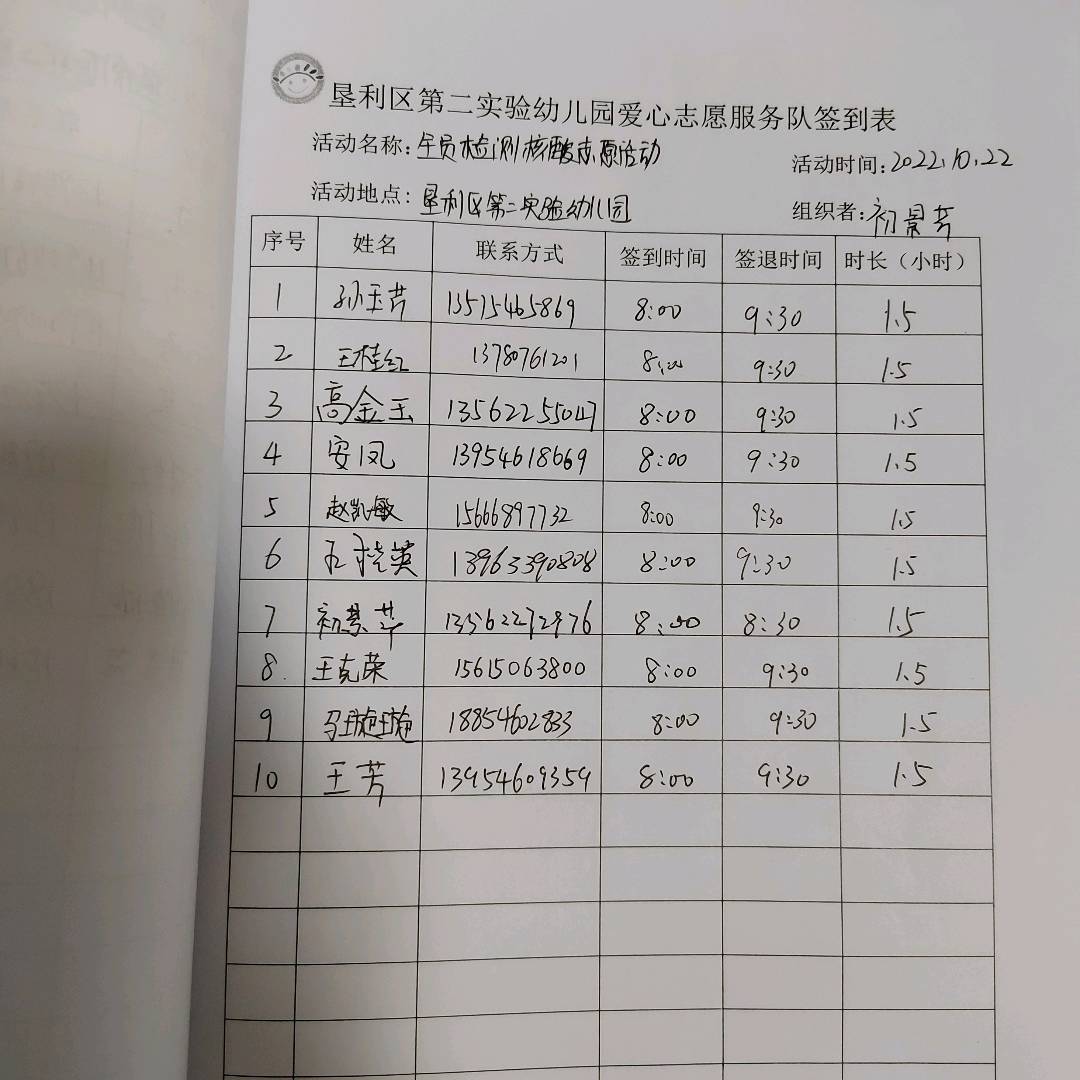 垦利区第二实验幼儿园爱心志愿服务队签到表
活动名称:全员检测核酸志愿活动 活动时间:2022.10.22
活动地点:垦利区第二实验幼儿园 组织者:初景芳
序号 姓名 联系方式 签到时间 签退时间 时长（小时）
1 孙玉芳 13515465869 8:00 9:30 1.5
2 王桂红 13780761201 8:00 9:30 1.5
3 高金玉 13562255047 8:00 9:30 1.5
4 安凤 13954618669 8:00 9:30 1.5
5 赵凯敏 15666897732 8:00 9:30 1.5
6 英 13963390808 8:00 9:30 1.5
7 初景华 13562272976 8:00 8:30 1.5
8. 王克荣 15615063800 8:00 9:30 1.5
9 马璇璇 18854602833 8:00 9:30 1.5
10 王芳 13954609359 8:00 9:30 1.5